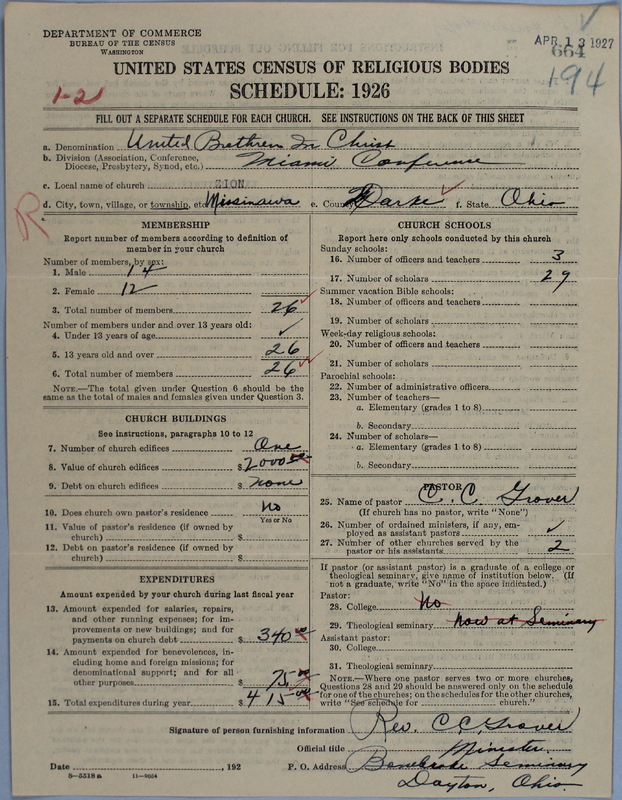 DEPARTMENT OF COMMERCE
BUREAU OF THE CENSUS
WASHINGTON
APR 13 1927
664
194
UNITED STATES CENSUS OF RELIGIOUS BODIES
SCHEDULE: 1926
1-2
FILL OUT A SEPARATE SCHEDULE FOR EACH CHURCH. SEE INSTRUCTIONS ON THE BACK OF THIS SHEET
a. Denomination United Brethren In Christ
b. Division (Association, Conference, Diocese, Presbytery, Synod, etc.) Miami Conference
c. Local name of church ZION
d. City, town, village, or township, etc. Missinawa e. County Darke f. State Ohio
R
MEMBERSHIP
Report number of members according to definition of
member in your church
Number of members, by sex:
1. Male 14
2. Female 12
3. Total number of members 26
Number of members under and over 13 years old:
4. Under 13 years of age ✓
5. 13 years old and over 26
6. Total number of members 26
NOTE.—The total given under Question 6 should be
same as the total of males and females given under Question 3.
CHURCH BUILDINGS
See instructions, paragraphs 10 to 12
7. Number of church edifices One
8. Value of church edifices $2000.00
9. Debt on church edifices $ none
10. Does church own pastor's residence No
Yes or No
11. Value of pastor's residence (if owned by
church) $
12. Debt on pastor's residence (if owned by
church) $
EXPENDITURES
Amount expended by your church during last fiscal year
13. Amount expended for salaries, repairs,
and other running expenses; for im-
provements or new buildings; and for
payments on church debt $ 340.00
14. Amount expended for benevolences, in-
cluding home and foreign missions; for
denominational support; and for all
other purposes $ 75.00
15. Total expenditures during year $ 415.00
CHURCH SCHOOLS
Report here only schools conducted by this church
Sunday schools:
16. Number of officers and teachers 3
17. Number of scholars 29
Summer vacation Bible schools:
18. Number of officers and teachers
19. Number of scholars
Week-day religious schools:
20. Number of officers and teachers
21. Number of scholars
Parochial schools:
22. Number of administrative officers
23. Number of teachers—
a. Elementary (grades 1 to 8)
b. Secondary
24. Number of scholars—
a. Elementary (grades 1 to 8)
b. Secondary
PASTOR
25. Name of pastor C. C. Grover
(If church has no pastor, write "None")
26. Number of ordained ministers, if any, em-
ployed as assistant pastors ✓
27. Number of other churches served by the
pastor or his assistants 2
If pastor (or assistant pastor) is a graduate of a college or
theological seminary, give name of institution below. (If
not a graduate, write "No" in the space indicated.)
Pastor:
28. College No
29. Theological seminary now at Seminary
Assistant pastor:
30. College
31. Theological seminary
NOTE.—Where one pastor serves two or more churches,
Questions 28 and 29 should be answered only on the schedule
for one of the churches; on the schedules for the other churches,
write "See schedule for church."
Signature of person furnishing information Rev. C. C. Grover
Official title Minister
Date , 192 P. O. Address Bonebrake Seminary
Dayton, Ohio.
8—5518a 11—9664